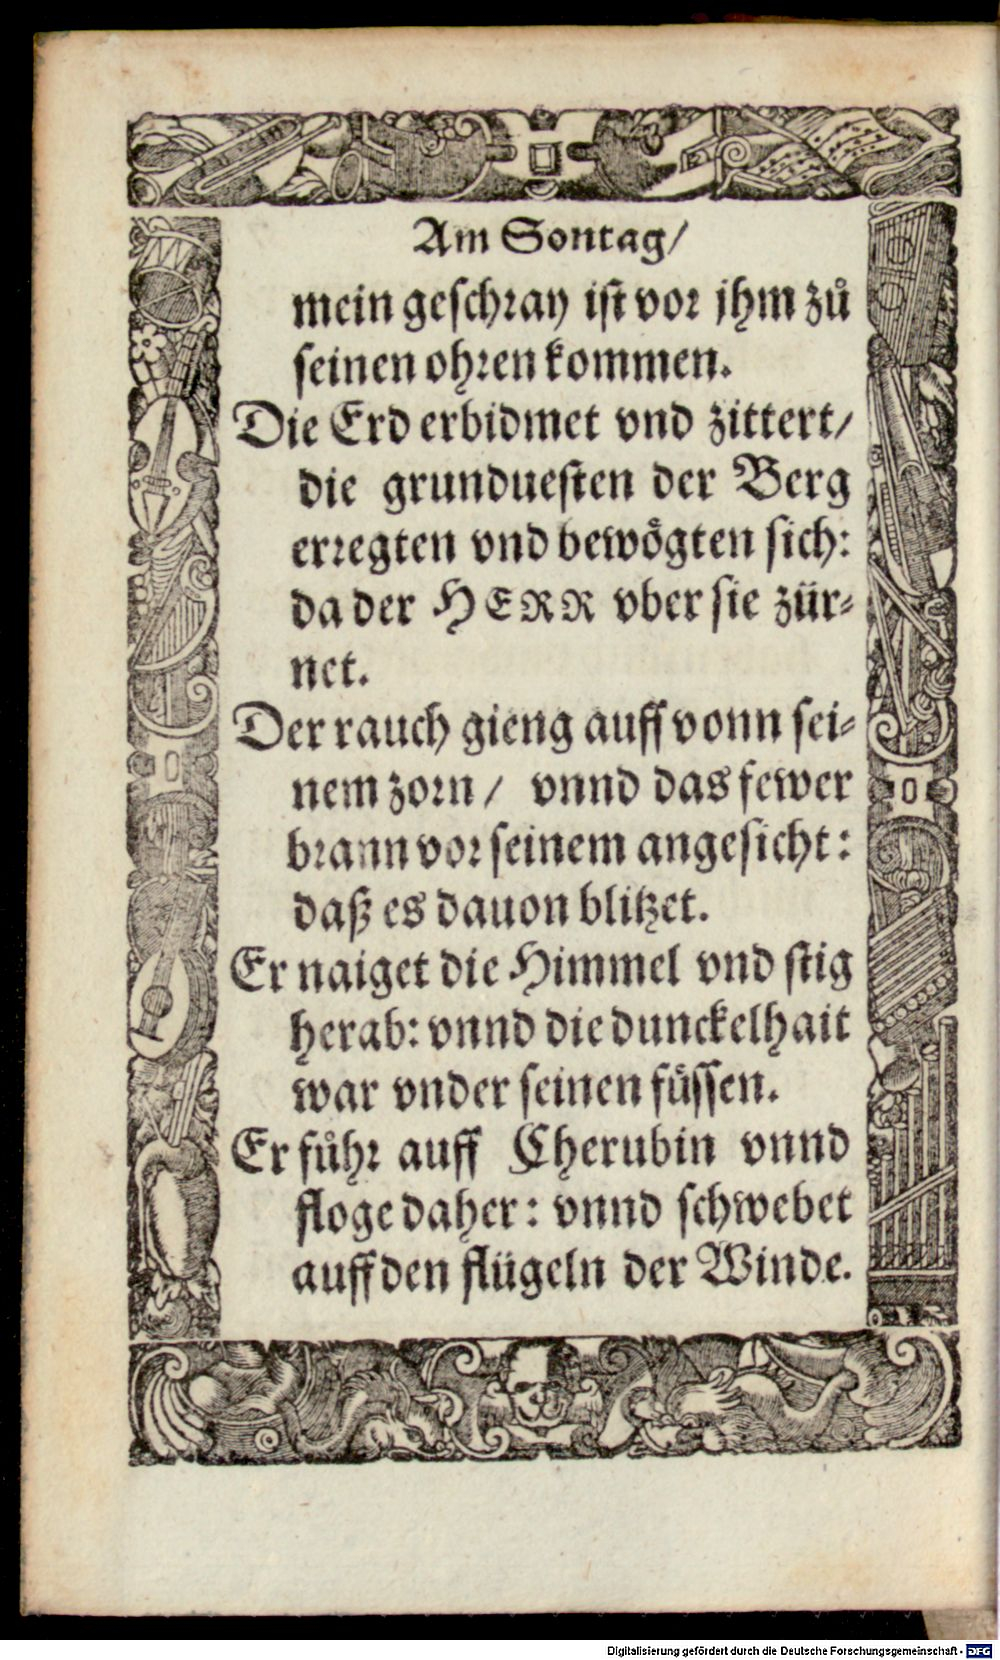 Am Sontag/
mein geschray ist vor jhm zů
seinen ohren kommen.
Die Erd erbidmet vnd zittert/
die grunduesten der Berg
erregten vnd bewoͤgten sich:
da der HERR vber sie zür-
net.
Der rauch gieng auff vonn sei-
nem zorn / vnnd das fewer
brann vor seinem angesicht:
daß es dauon blitzet.
Er naiget die Himmel vnd stig
herab: vnnd die dunckelhait
war vnder seinen füssen.
Er fůhr auff Cherubin vnnd
floge daher: vnnd schwebet
auff den flügeln der Winde.
Digitalisierung gefördert durch die Deutsche Forschungsgemeinschaft - DFG